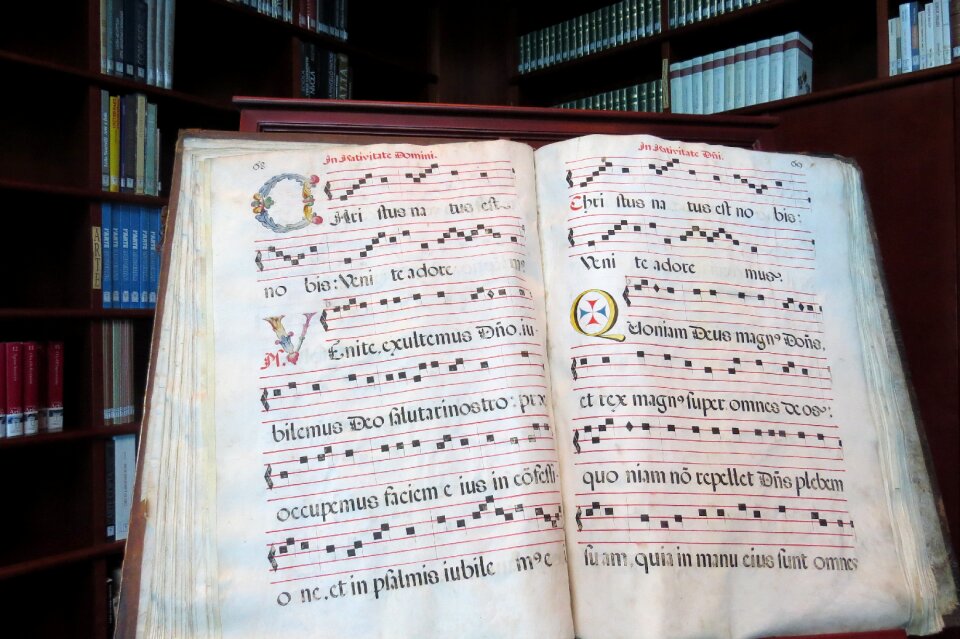 68
In Nativitate Domini.
CHri stus na tus est
no bis: Veni te adore m⁹
M. VEnite, exultemus Dño, iu-
bilemus Deo salutari nostro: præ
occupemus faciem e ius in cõfessi-
o ne, et in psalmis iubile m⁹ e
In Nativitate Dñi.
69
Chri stus na tus est no bis:
Veni te adore mus.
Quoniam Deus magn⁹ Dñs,
et rex magn⁹ super omnes deos:
quo niam nõ repellet Dñs plebem
su am, quia in manu eius sunt omnes